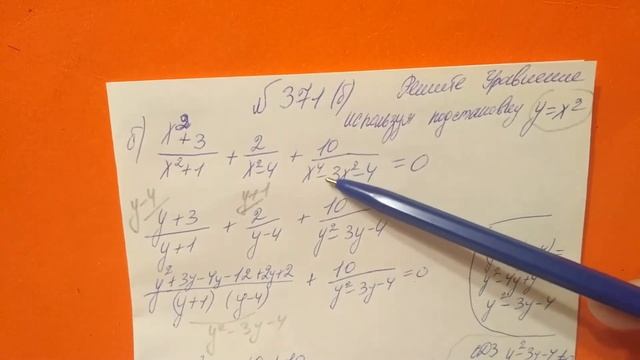 № 371 (б) Решите уравнение
используя подстановку y = x²
б) (x² + 3)/(x² + 1) + 2/(x² - 4) + 10/(x⁴ - 3x² - 4) = 0
y - 4 y + 1
(y + 3)/(y + 1) + 2/(y - 4) + 10/(y² - 3y - 4)
(y² + 3y - 4y - 12 + 2y + 2)/((y + 1)(y - 4)) + 10/(y² - 3y - 4) = 0
y² - 3y - 4
y² - 4y + y
y² - 3y - 4
ОДЗ y² - 3y - 4 ≠